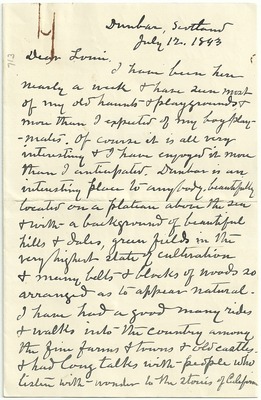 Dunbar, Scotland
July 12. 1893
713
Dear Louie.
I have been here
nearly a week & have seen most
of my old haunts & playgrounds &
more than I expected of my boy play-
-mates. Of course it is all very
interesting & I have enjoyed it more
than I anticipated. Dunbar is an
interesting place to anybody, beautifully
located on a plateau above the sea
& with a background of beautiful
hills & dales, green fields in the
very highest state of cultivation
& many belts & blocks of woods so
arranged as to appear natural.
I have had a good many rides
& walks into the country among
the fine farms & towns & old castles,
& had long talks with people who
listen with wonder to the stories of California